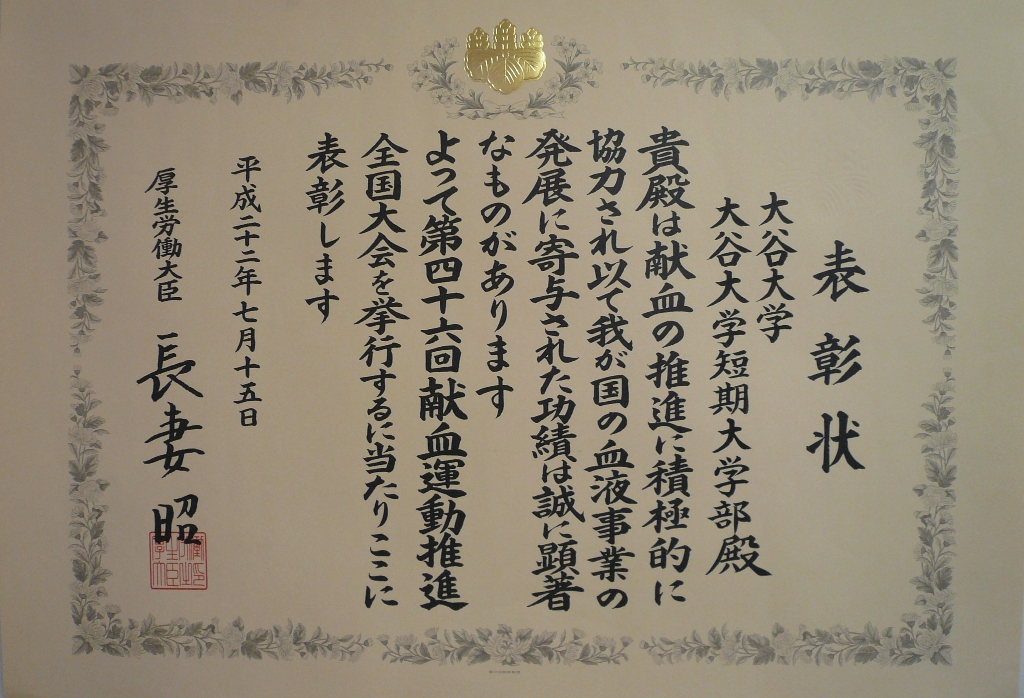 表彰状
大谷大学
大谷大学短期大学部殿
貴殿は献血の推進に積極的に
協力され以て我が国の血液事業の
発展に寄与された功績は誠に顕著
なものがあります
よって第四十六回献血運動推進
全国大会を挙行するに当たりここに
表彰します
平成二十二年七月十五日
厚生労働大臣 長妻昭